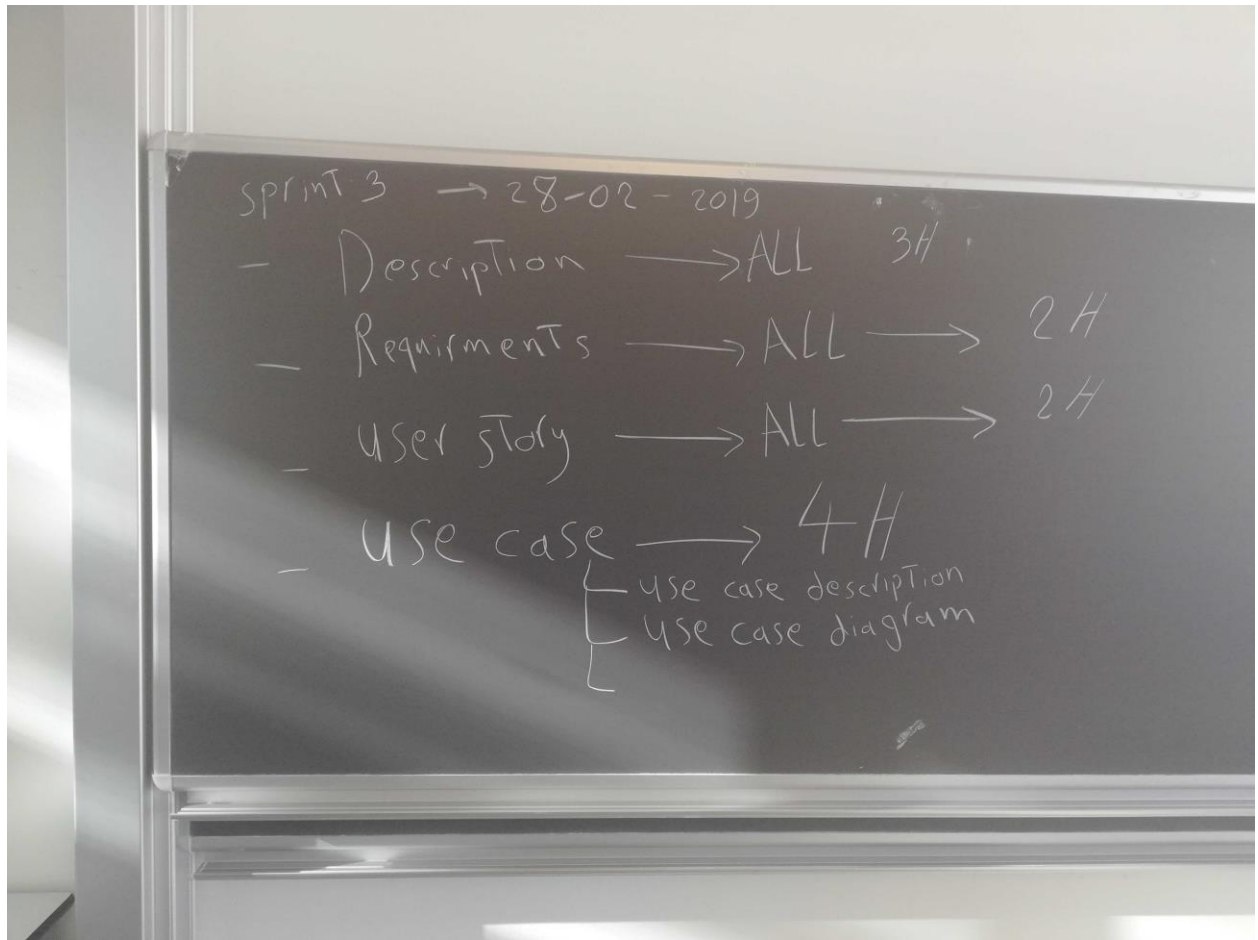 sprint 3 → 28-02-2019
- Description → ALL 3H
- Requirments → ALL → 2H
- user story → ALL → 2H
- use case → 4H
- use case description
- use case diagram